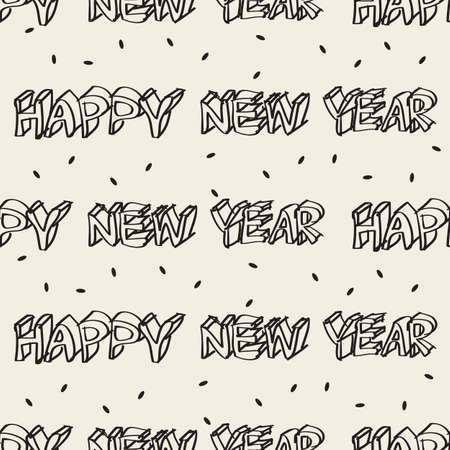 PY NEW YEAR HAP
HAPPY NEW YEAR
PY NEW YEAR HAPP
HAPPY NEW YEAR
PY NEW YEAR HAPP